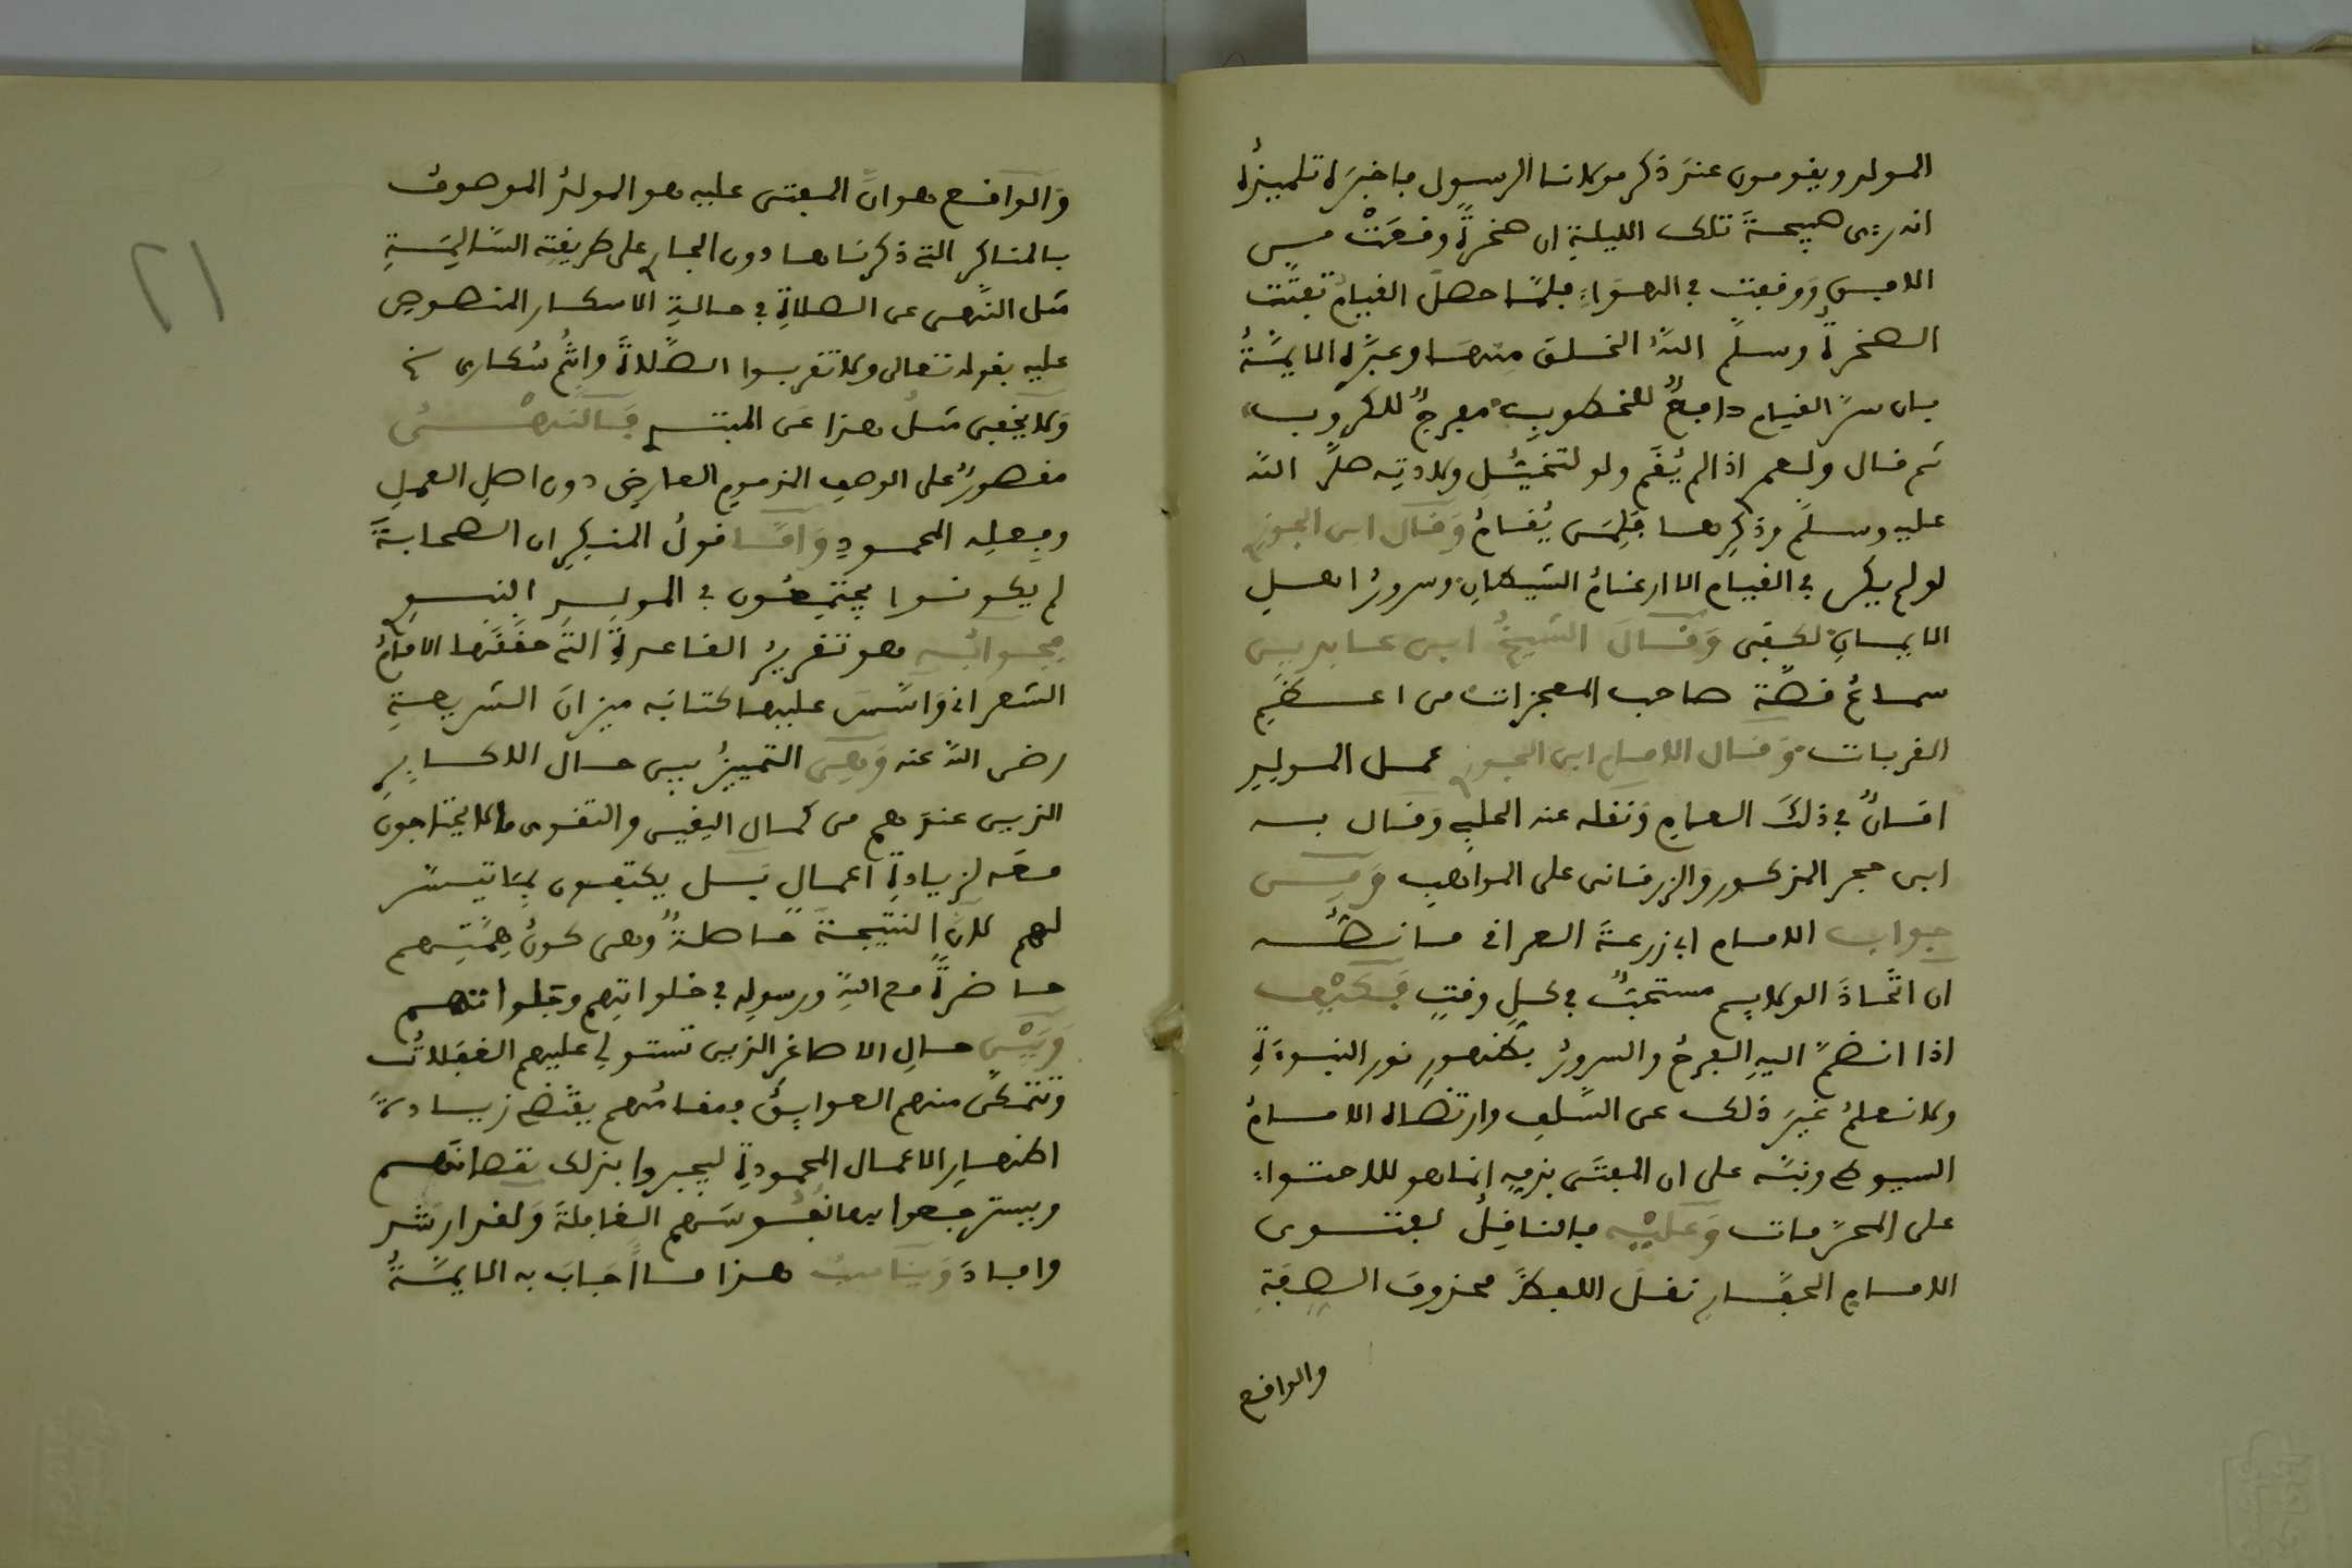 المولد ويقومون عند ذكر مولانا الرسول فاخبره تلميذه
انه رءى صبيحة تلك الليلة ان صخرة وقعت من
الافق ووقفت في الهواء فلما حصل القيام تفتت
الصخرة وسلم الله الخلق منها وعبره الايمة
بان سر القيام دافع للخطوب مفرج للكروب
ثم قال ولعمر اذا لم يقم ولو لتخيل ولادته صلى الله
عليه وسلم وذكرها فلمن يقام وقال ابن الجوزي
لو لم يكن في القيام الا ارغام الشيطان وسرور اهل
الايمان لكفى وقال الشيخ ابن عابدين
سماع قصة صاحب المعجزات من اعظم
القربات وقال الامام ابن الجوزي عمل المولد
امان في ذلك العام ونقله عنه الحلبي وقال به
ابن حجر المذكور والزرقاني على المواهب ومن
جواب الامام ابي زرعة العراقي ما نصه
ان اتخاذ الولايم مستحب في كل وقت فكيف
اذا انضم اليه الفرح والسرور بظهور نور النبوءة
ولا نعلم غير ذلك عن السلف وارتضاه الامام
السيوطي ونبه على ان المفتى بذمه انما هو للاحتواء
على المحرمات وعليه فالناقل لفتوى
الامام الحفار نقل اللفظ محذوف الصفة
والواقع
والواقع هو ان المفتى عليه هو المولد الموصوف
بالمناكر التي ذكرناها دون الجار على طريقته السالمة
مثل النهي عن الصلاة في حالة الاسكار المنصوص
عليه بقوله تعالى ولا تقربوا الصلاة وانتم سكارى
ولا يخفى مثل هذا عن المفتي فالنهي
مقصور على الوصف الذميم العارض دون اصل العمل
وفعله المحمود واما قول المنكر ان الصحابة
لم يكونوا يجتمعون في المولد النبوي
فجوابه هو تقرير القاعدة التي حققها الامام
الشعراني واسس عليها كتابه ميزان الشريعة
رضي الله عنه وهي التمييز بين حال الاكابر
الذين عندهم من كمال اليقين والتقوى ما لا يحتاجون
معه لزيادة اعمال بل يكتفون بما تيسر
لهم لان النتيجة حاصلة وهي كون همتهم
حاضرة مع الله ورسوله في خلواتهم وجلواتهم
وبين حال الاصاغر الذين تستولي عليهم الغفلات
وتتمكن منهم العوايق فمقامهم يقتضي زيادة
اظهار الاعمال المحمودة ليجبروا بذلك نقصانهم
ويسترجعوا بها نفوسهم الغافلة ولقد ارشد
وافاد ويناسب هذا ما اجاب به الايمة
٢١